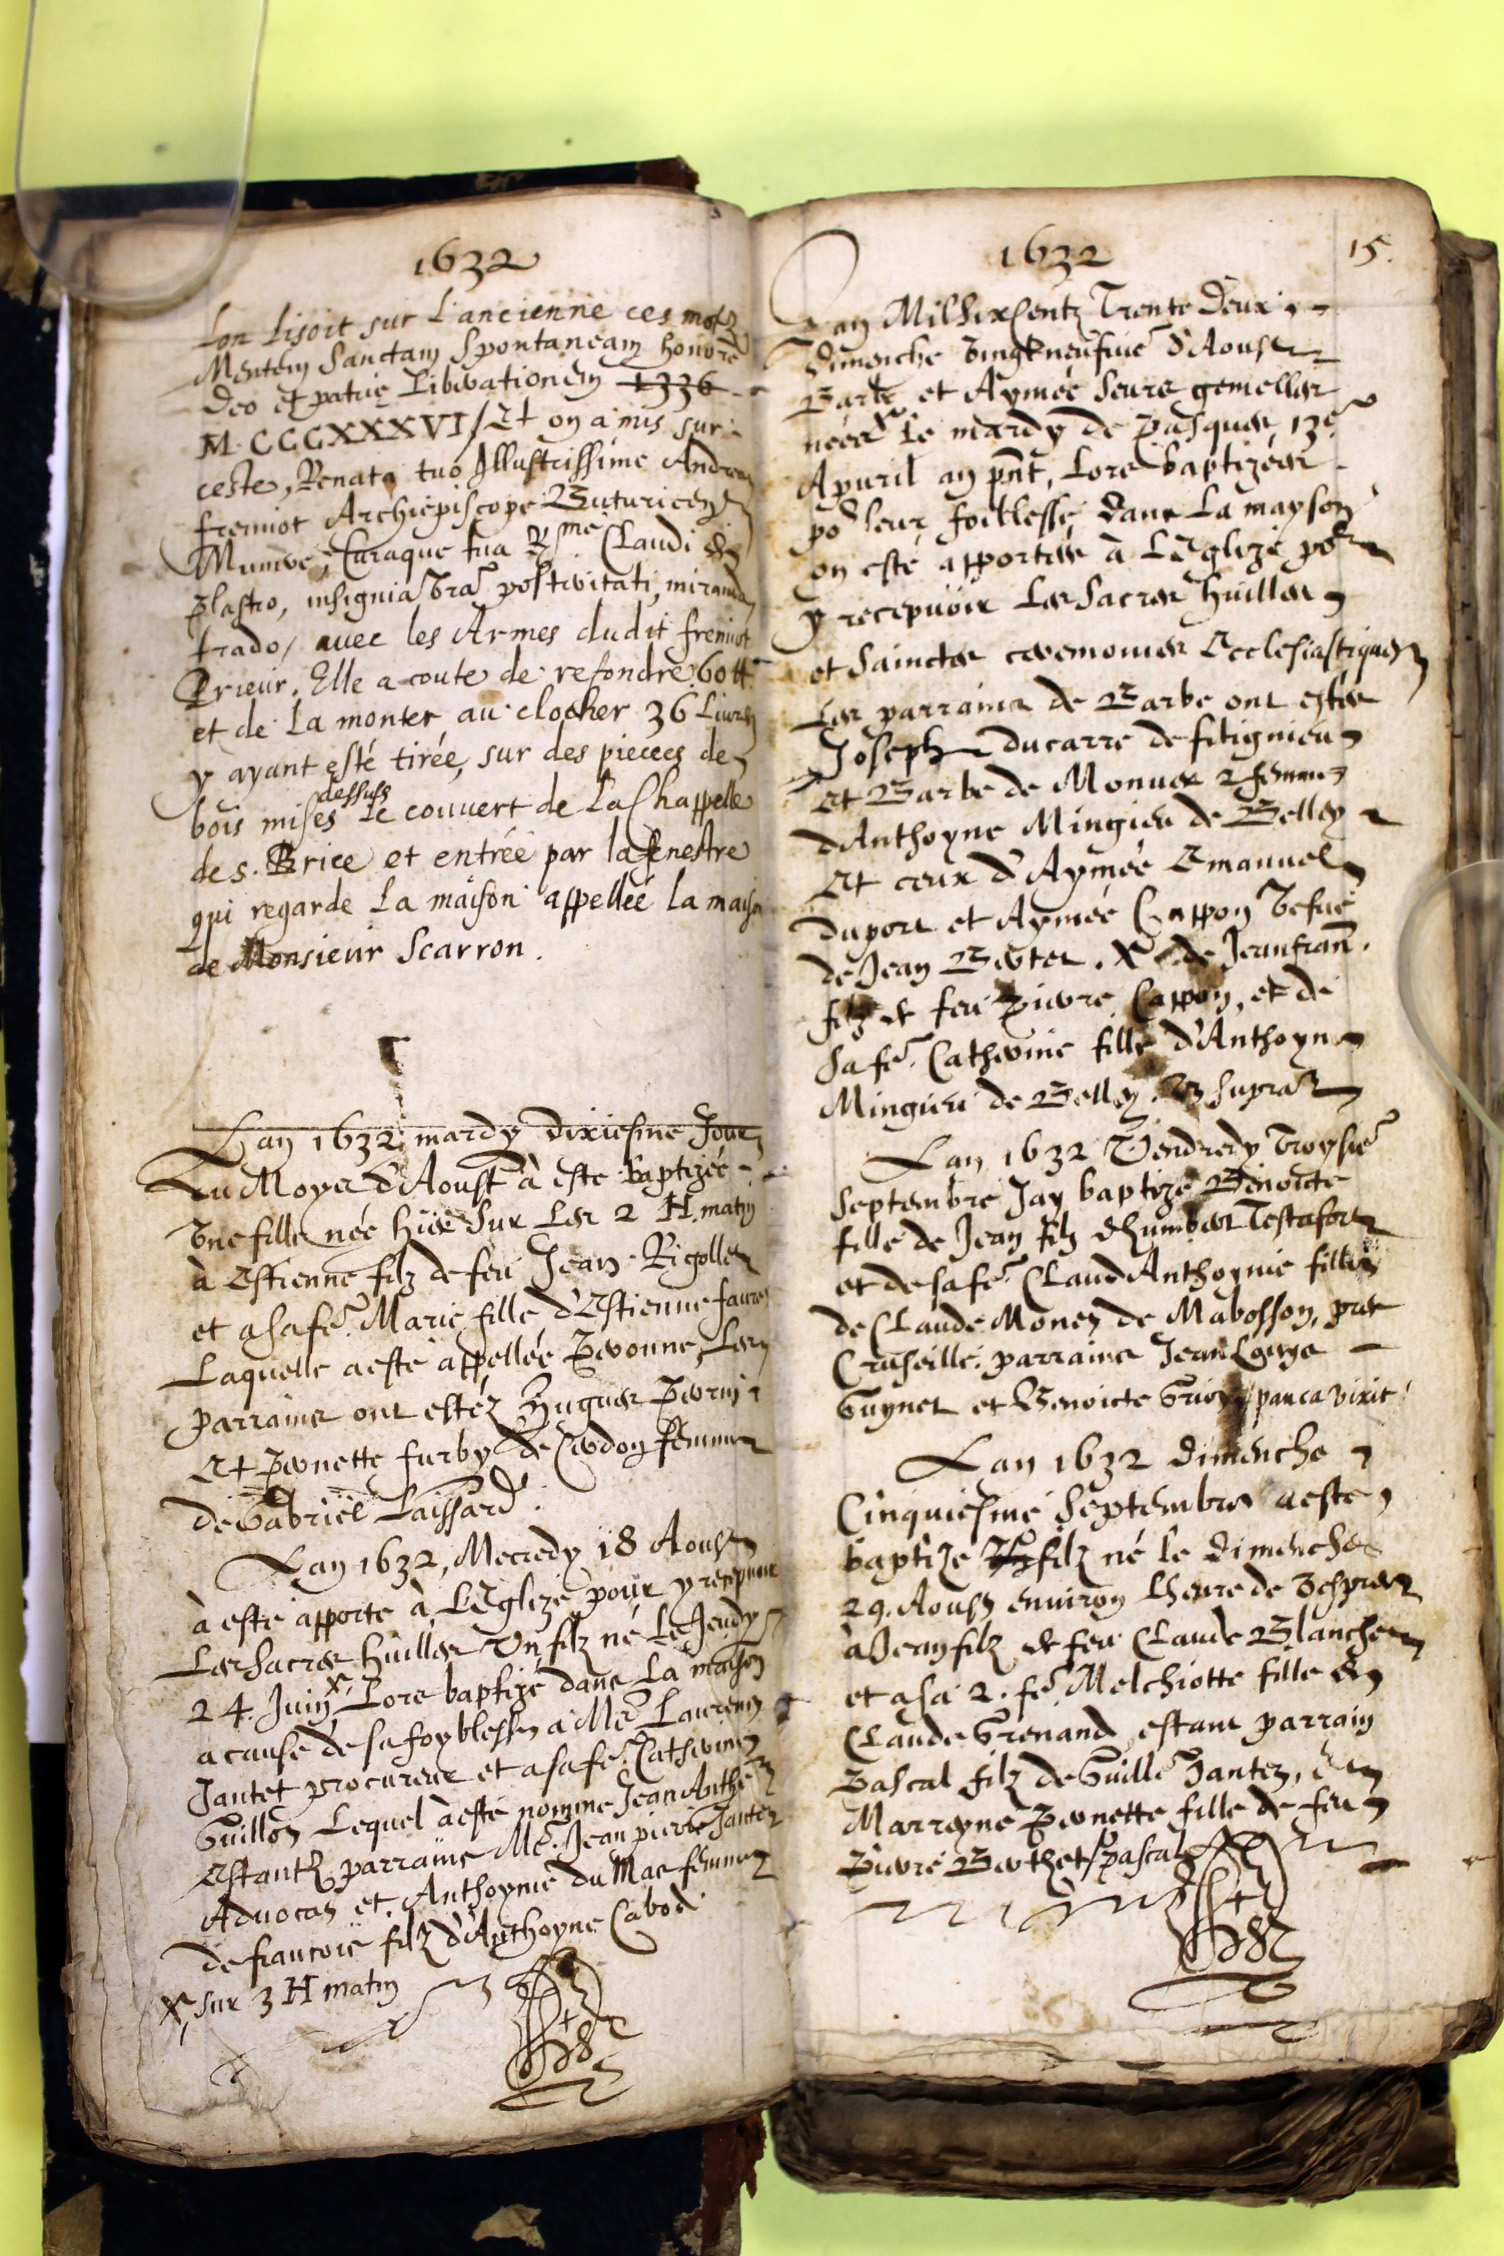 1632
Lon Lisoit sur L'ancienne ces motz
Mentem Sanctam Spontaneam honore
Deo et patrie Liberationem 1336
M.CCCXXXVI / Et on a mis sur
ceste, Renata tuo Illustrissime Andrea
fremiot Archiepiscope Buturicen
Munere, Curaque tua Rme Claudi de
plastro, insignia vra posteritati miranda
trado, avec les Armes dudit fremiot
Prieur. Elle a coute de refondre 60 tt
et de La monter au clocher 36 Liures
y ayant esté tirée, sur des pieces de
dessuss
bois mises Le couvert de La Chappelle
de s. Brice et entrée par la fenestre
qui regarde La maison appellée la maison
de Monsieur Scarron.
Lan 1632 mardy dixiesme Jour
du Moys d'Aoust à este baptizée
Une fille née hier sur Les 2 H. matin
à Estienne filz de feu Jean Rigollet
et a sa fe. Marie fille d'Estienne favre
Laquelle a esté appellée Pernonne, Les
parrains ont estéz Hugues
Et Pernette furby de Cerdon femme
de Gabriël Laissard.
Lan 1632, Mecredy 18 Aoust
à esté apporté à L'Eglize pour y recepuoir
Les Sacres huilles Un filz né Le Jeudy
24. Juin x Lors baptizé dans La maison
a cause de sa foyblesse a Me. Laurent
Jantet procureur et a sa fe. Catherine
Guillon Lequel à esté nommé Jean Anthe
Estantz parrains Me. Jean pierre Jantet
Aduocat et Anthoynie du Mas femme
de francois filz d'Anthoyne Cabod
x, sur 3 H matin
1632
15.
Lan Mil Six Centz Trente Deux
Dimenche Vingt neufme d'Aoust
Barbe et Aymée Seurs gemelles
nées le mardy de Pasques, 13e
Apuril an pnt, Lors baptizées
po leur foiblesse dans La mayson
on esté apportées à L'Eglize por
y recepuoir Les Sacres huilles
et Sainctes ceremonies Ecclesiastiques
Les parrains de Barbe ont estés
Joseph ducarre de fitignieu
Et Barbe de Monuer 2 femme
d'Anthoyne Mingieu de Belley
Et ceux d'Aymée Emanuel
duport et Aymée Cappon Vefue
de Jean Bertet. X de Jeanfrann.
filz de feu Pierre Cappon, et de
Sa fe. Catherine fille d'Anthoyne
Mingieu de Belley. Vt supra
Lan 1632 Vendredy troysie
Septembre Jay baptizé Benoicte
fille de Jean filz d'humbert Testafort
et de sa fe. Claud Anthoynie fille
de Claude Monet de Mabosson, pres
Cruseille. parrains Jean Loyse
Guynet et Benoicte pauca vixit
Lan 1632 dimenche
Cinquiesme Septembre a este
baptize filz né le dimenche
29. Aoust enuiron Lheure de Vespres
à Jean filz de feu Claude Blanchet
et a sa 2. fe. Melchiotte fille de
Claude Grenand, estant parrain
Pascal filz de Guille Jantet, et
Marrayne Pernette fille de feu
Pierre Berthet / Pascal